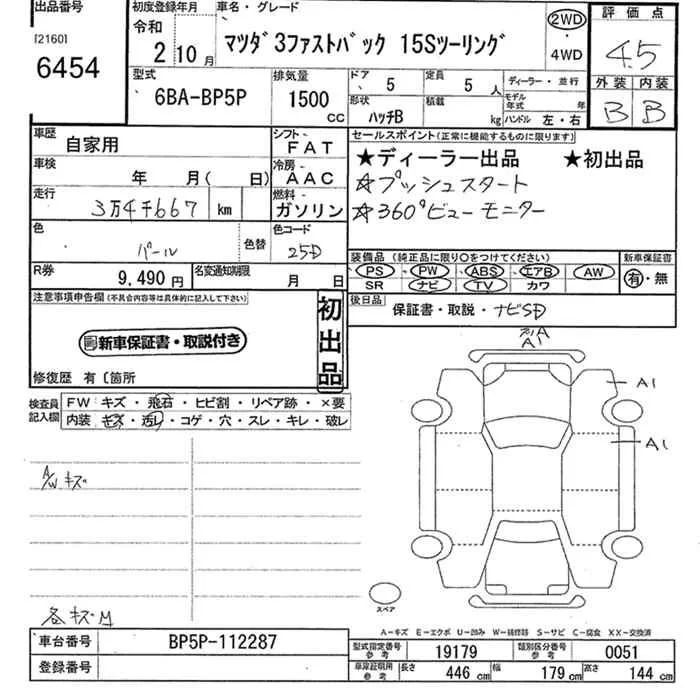 出品番号
[2160]
6454
初度登録年月
令和
2 10月
車名・グレード
マツダ3ファストバック 15Sツーリング
2WD
・
4WD
評価点
4.5
外装 内装
B B
型式
6BA-BP5P
排気量
1500
cc
ドア
5
定員
5 人
形状
ハッチB
積載
kg
ディーラー・並行
モデル年式 年
ハンドル 左・右
車歴
自家用
シフト
FAT
車検
年 月( 日)
冷房
AAC
走行
3万4千667 km
燃料
ガソリン
色
パール
色替
色コード
25D
R券
9,490 円
名変通知期限
月 日
セールスポイント(正常に機能するものに限ります)
★ディーラー出品 ★初出品
☆プッシュスタート
☆360°ビューモニター
装備品 (純正品に限り○をつけてください)
PS・PW・ABS・エアB・AW
SR ナビ TV カワ
新車保証書
有・無
後日品
保証書・取説・ナビSD
注意事項申告欄(不具合内容等は具体的に記入して下さい)
新車保証書・取説付き
初出品
修復歴 有〔箇所
検査員記入欄
FW キズ・飛石・ヒビ割・リペア跡・×要
内装 キズ・汚レ・コゲ・穴・スレ・キレ・破レ
A/W キズ
各キズM
A1
A1
A1
スペア
A-キズ E-エクボ U-凹み W-補修跡 S-サビ C-腐食 XX-交換済
車台番号
BP5P-112287
登録番号
型式指定番号
参考
19179
類別区分番号
参考
0051
車庫証明用
参考
長さ
446 cm
幅
179 cm
高さ
144 cm